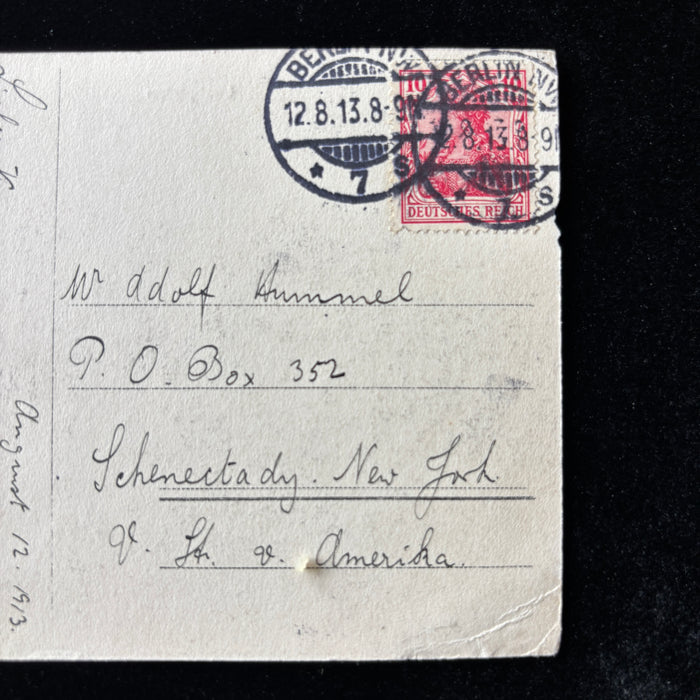 BERLIN NW
12.8.13.8-9N
* 7 S
BERLIN NW
12.8.13.8-9N
* 7 S
10 10
DEUTSCHES REICH
Mr Adolf Hummel
P. O. Box 352
Schenectady. New York
V. St. v. Amerika.
August 12. 1913.